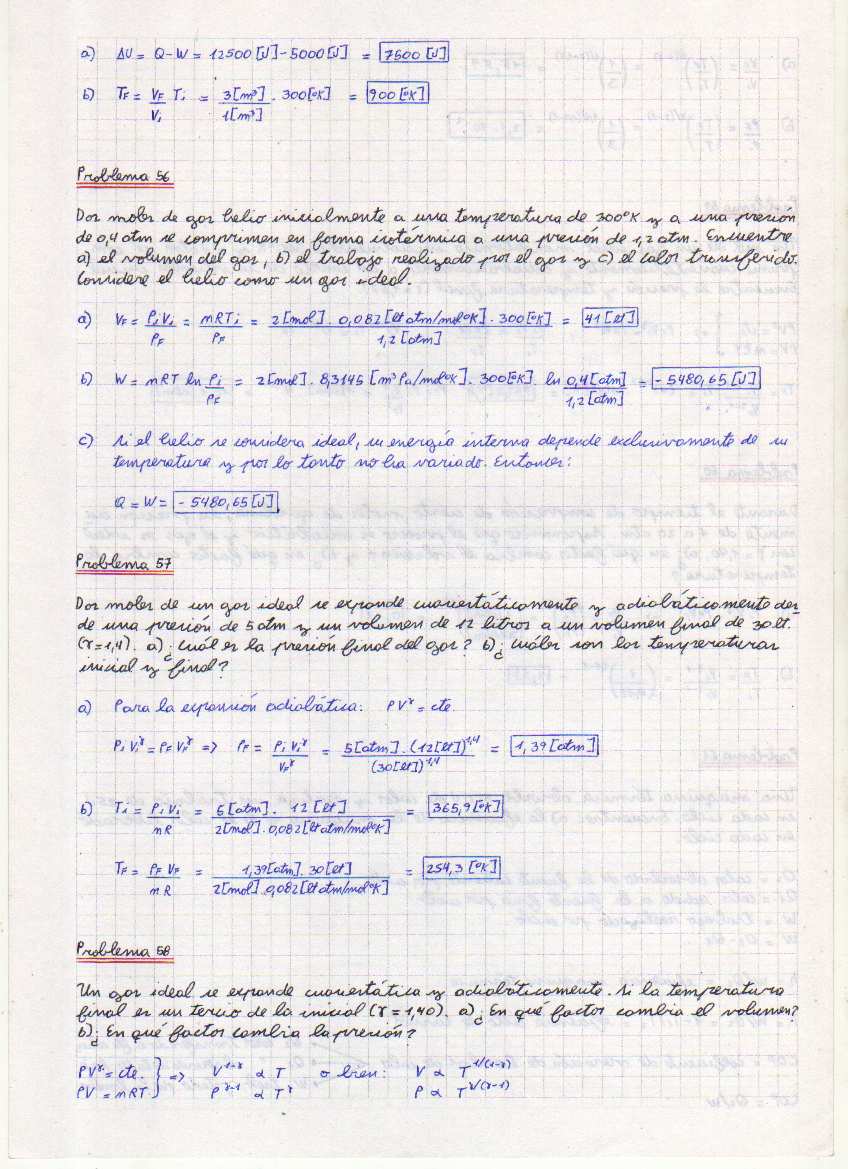 a) ΔU = Q-W = 12500 [J] - 5000 [J] = 7500 [J]
b) TF = VF/Vi Ti = 3[m³]/1[m³] . 300[°K] = 900 [°K]
Problema 56
Dos moles de gas helio inicialmente a una temperatura de 300°K y a una presión
de 0,4 atm se comprimen en forma isotérmica a una presión de 1,2 atm. Encuentre
a) el volumen del gas, b) el trabajo realizado por el gas y c) el calor transferido.
Considere el helio como un gas ideal.
a) VF = Pi Vi/PF = nRTi/PF = 2[mol] . 0,082[lt atm/mol°K] . 300[°K]/1,2 [atm] = 41 [lt]
b) W = nRT ln Pi/PF = 2[mol] . 8,3145 [m³Pa/mol°K] . 300[°K] . ln 0,4[atm]/1,2[atm] = - 5480,65 [J]
c) Si el helio se considera ideal, su energía interna depende exclusivamente de su
temperatura y por lo tanto no ha variado. Entonces:
Q = W = - 5480,65 [J]
Problema 57
Dos moles de un gas ideal se expande cuasiestáticamente y adiabáticamente des
de una presión de 5 atm y un volumen de 12 litros a un volumen final de 30 lt.
(γ=1,4). a) ¿cuál es la presión final del gas? b) ¿ cuáles son las temperaturas
inicial y final?
a) Para la expansión adiabática: PVᵞ = cte.
Pi Viᵞ = PF VFᵞ => PF = Pi Viᵞ/VFᵞ = 5[atm] . (12[lt])^1,4/(30[lt])^1,4 = 1,39 [atm]
b) Ti = Pi Vi/nR = 5[atm] . 12 [lt]/2[mol] . 0,082[lt atm/mol°K] = 365,9 [°K]
TF = PF VF/nR = 1,39[atm] . 30[lt]/2[mol] . 0,082[lt atm/mol°K] = 254,3 [°K]
Problema 58
Un gas ideal se expande cuasiestática y adiabáticamente. Si la temperatura
final es un tercio de la inicial (γ = 1,40). a) ¿ En qué factor cambia el volumen?
b) ¿ En qué factor cambia la presión?
PVᵞ = cte. } => V^(1-γ) ∝ T o bien: V ∝ T^1/(1-γ)
PV = nRT } P^(γ-1) ∝ Tᵞ P ∝ T^γ/(γ-1)